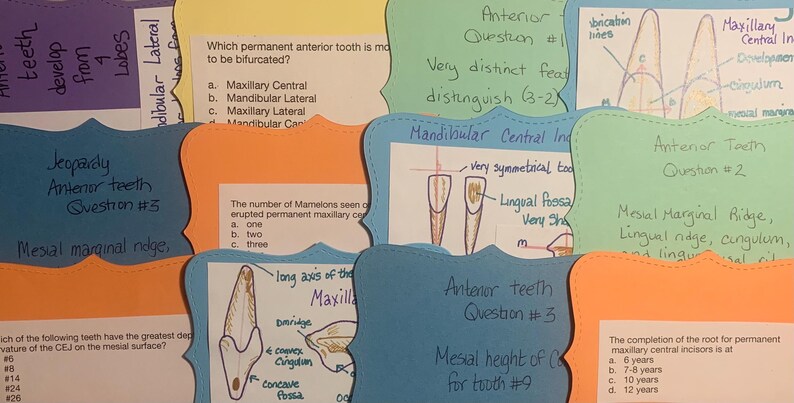 teeth
develop
from
4
Lobes
Lateral
Which permanent anterior tooth is
to be bifurcated?
a. Maxillary Central
b. Mandibular Lateral
c. Maxillary Lateral
d. Mandibular
Anterior
Question #1
Very distinct
distinguish (3-2)
lines
Maxillary
Central
Cingulum
C
M
Jeopardy
Anterior teeth
Question #3
Mesial marginal ridge,
The number of Mamelons seen
erupted permanent maxillary
a. one
b. two
c. three
Mandibular Central
very symmetrical
Lingual Fossa
Very
m
Anterior Teeth
Question #2
Mesial Marginal Ridge,
Lingual ridge, cingulum,
and
of the following teeth have the greatest
of the CEJ on the mesial surface?
#6
#8
#14
#24
#26
long axis of the
convex
Cingulum
Concave
Fossa
Anterior teeth
Question #3
Mesial height of
for tooth #9
The completion of the root for permanent
maxillary central incisors is at
a. 6 years
b. 7-8 years
c. 10 years
d. 12 years